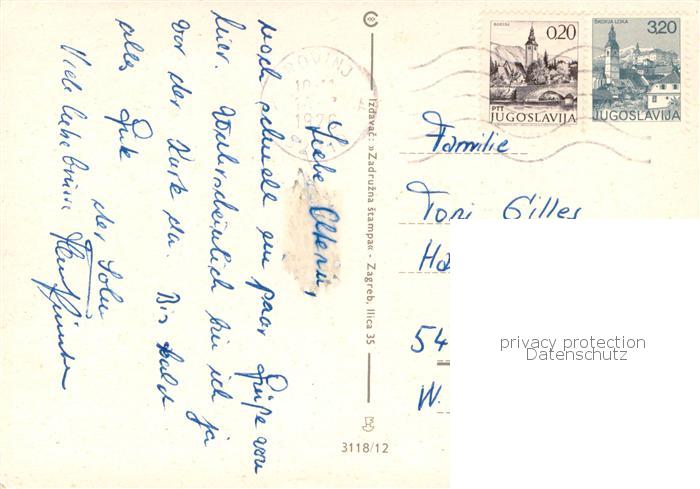 Liebe Eltern,
noch schnell ein paar Grüße von
hier. Wahrscheinlich bin ich ja
vor der Karte da. Bis bald
alles Gute
der Sohn
Viele liebe
ROVINJ
10
1976
Izdavač: »Zadružna štampa« - Zagreb, Ilica 35
3118/12
BOHINJ
0.20
PTT
JUGOSLAVIJA
ŠKOFJA LOKA
3.20
JUGOSLAVIJA
Familie
Toni Gilles
Ha
54
W.
privacy protection
Datenschutz